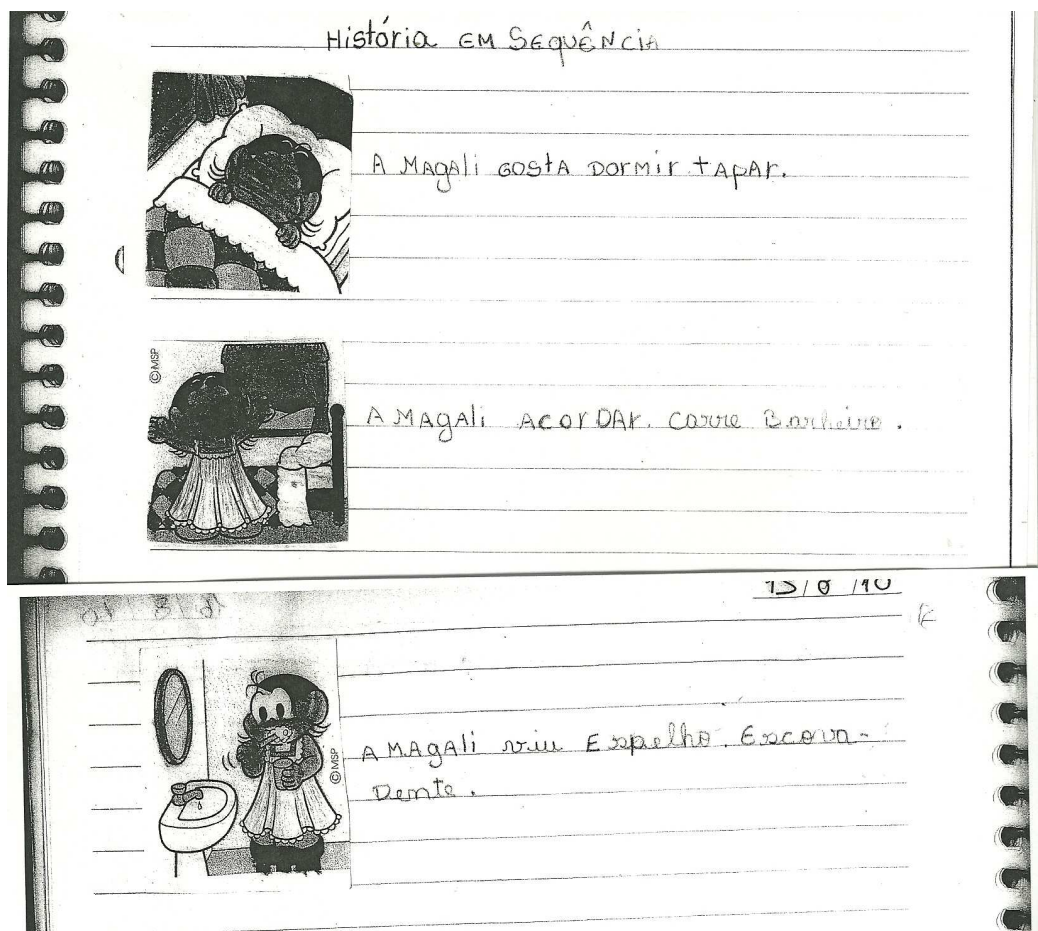 História EM SEQUÊNCIA
A MAgAli GOStA DOrMir tApAr.
©MSP
A MAgAli AcorDAr. Corre Banheiro.
A MAgAli viu Espelho. Escova-
Dente.
©MSP